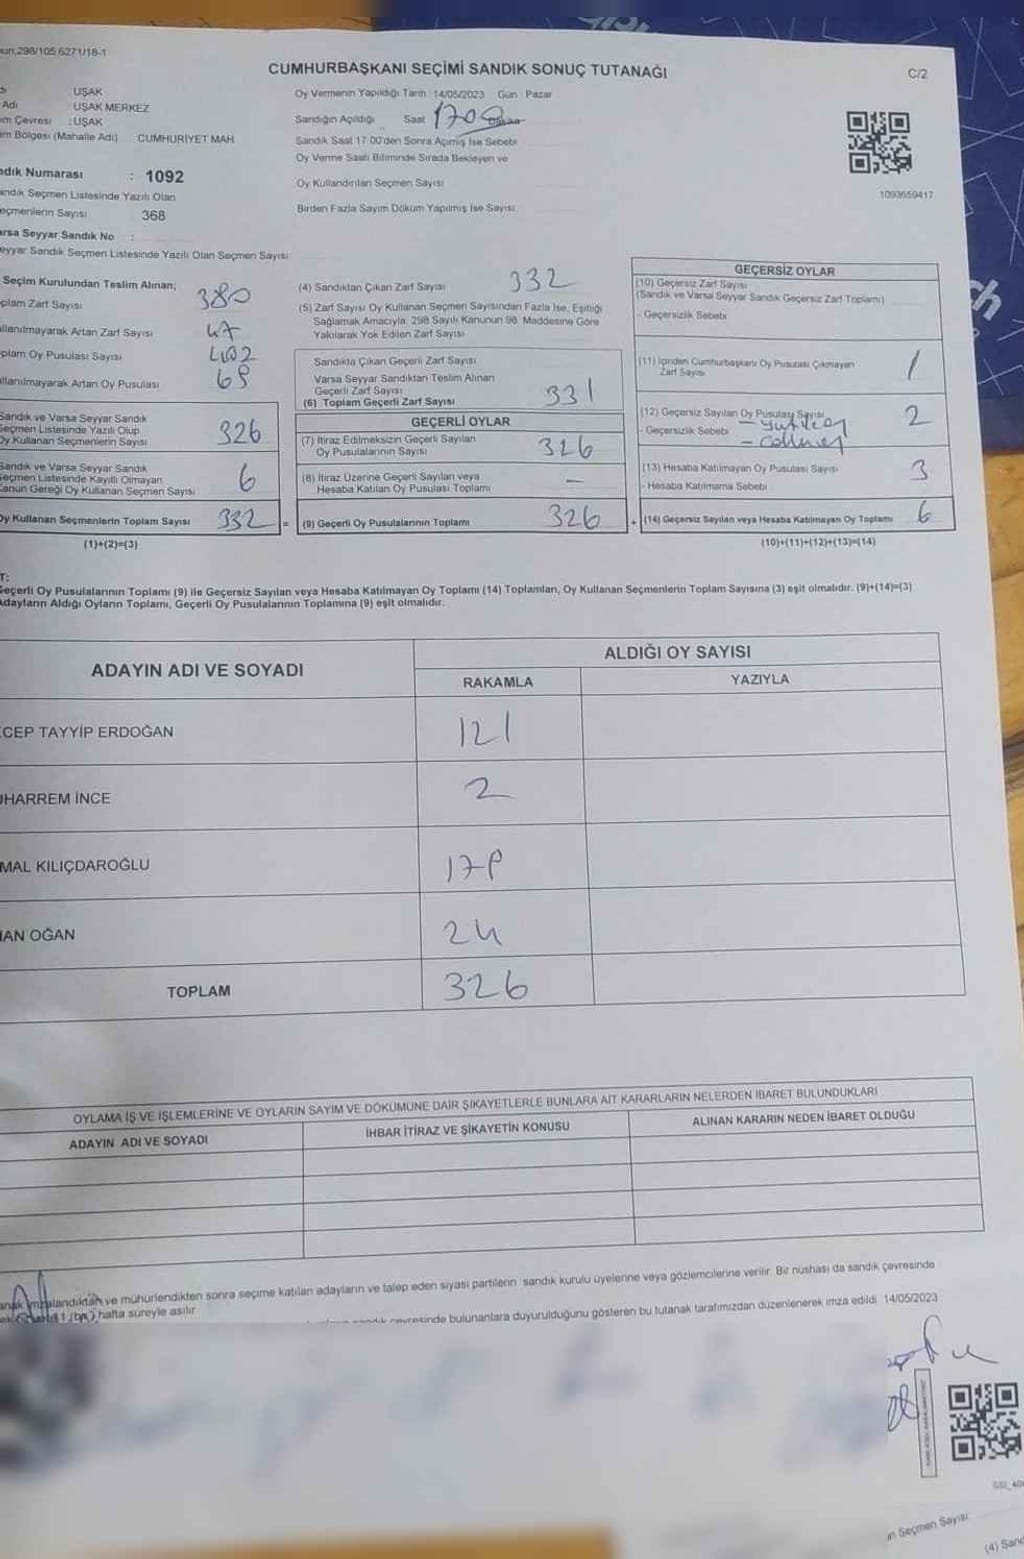 298/105,6271/18-1
CUMHURBAŞKANI SEÇİMİ SANDIK SONUÇ TUTANAĞI
C/2
UŞAK
Adı UŞAK MERKEZ
im Çevresi : UŞAK
im Bölgesi (Mahalle Adı) CUMHURİYET MAH
Oy Vermenin Yapıldığı Tarih 14/05/2023 Gün : Pazar
Sandığın Açıldığı Saat 1700 Dakika
Sandık Saat 17:00'den Sonra Açımış İse Sebebi
Oy Verme Saati Bitiminde Sırada Bekleyen ve
Oy Kullandırılan Seçmen Sayısı
Birden Fazla Sayım Döküm Yapılmış İse Sayısı
1093659417
ndık Numarası : 1092
andık Seçmen Listesinde Yazılı Olan
eçmenlerin Sayısı 368
arsa Seyyar Sandık No :
eyyar Sandık Seçmen Listesinde Yazılı Olan Seçmen Sayısı
Seçim Kurulundan Teslim Alınan;
plam Zarf Sayısı 380
ullanılmayarak Artan Zarf Sayısı 47
plam Oy Pusulası Sayısı 402
ullanılmayarak Artan Oy Pusulası 69
Sandık ve Varsa Seyyar Sandık
Seçmen Listesinde Yazılı Olup
Oy Kullanan Seçmenlerin Sayısı 326
Sandık ve Varsa Seyyar Sandık
Seçmen Listesinde Kayıtlı Olmayan
Kanun Gereği Oy Kullanan Seçmen Sayısı 6
Oy Kullanan Seçmenlerin Toplam Sayısı 332 =
(1)+(2)=(3)
(4) Sandıktan Çıkan Zarf Sayısı 332
(5) Zarf Sayısı Oy Kullanan Seçmen Sayısından Fazla İse, Eşitliği
Sağlamak Amacıyla, 298 Sayılı Kanunun 98. Maddesine Göre
Yakılarak Yok Edilen Zarf Sayısı
Sandıkta Çıkan Geçerli Zarf Sayısı
Varsa Seyyar Sandıktan Teslim Alınan
Geçerli Zarf Sayısı
(6) Toplam Geçerli Zarf Sayısı 331
GEÇERLİ OYLAR
(7) İtiraz Edilmeksizin Geçerli Sayılan
Oy Pusulalarının Sayısı 326
(8) İtiraz Üzerine Geçerli Sayılan veya
Hesaba Katılan Oy Pusulası Toplamı —
(9) Geçerli Oy Pusulalarının Toplamı 326 +
GEÇERSİZ OYLAR
(10) Geçersiz Zarf Sayısı
(Sandık ve Varsa Seyyar Sandık Geçersiz Zarf Toplamı)
- Geçersizlik Sebebi
(11) İçinden Cumhurbaşkanı Oy Pusulası Çıkmayan
Zarf Sayısı 1
(12) Geçersiz Sayılan Oy Pusulası Sayısı 2
- Geçersizlik Sebebi
(13) Hesaba Katılmayan Oy Pusulası Sayısı 3
- Hesaba Katılmama Sebebi
(14) Geçersiz Sayılan veya Hesaba Katılmayan Oy Toplamı 6
(10)+(11)+(12)+(13)=(14)
T:
Geçerli Oy Pusulalarının Toplamı (9) ile Geçersiz Sayılan veya Hesaba Katılmayan Oy Toplamı (14) Toplamları, Oy Kullanan Seçmenlerin Toplam Sayısına (3) eşit olmalıdır. (9)+(14)=(3)
Adayların Aldığı Oyların Toplamı, Geçerli Oy Pusulalarının Toplamına (9) eşit olmalıdır.
ADAYIN ADI VE SOYADI
ALDIĞI OY SAYISI
RAKAMLA YAZIYLA
CEP TAYYİP ERDOĞAN 121
UHARREM İNCE 2
MAL KILIÇDAROĞLU 179
NAN OĞAN 24
TOPLAM 326
OYLAMA İŞ VE İŞLEMLERİNE VE OYLARIN SAYIM VE DÖKÜMÜNE DAİR ŞİKAYETLERLE BUNLARA AİT KARARLARIN NELERDEN İBARET BULUNDUKLARI
ADAYIN ADI VE SOYADI İHBAR İTİRAZ VE ŞİKAYETİN KONUSU ALINAN KARARIN NEDEN İBARET OLDUĞU
anak imzalandıktan ve mühürlendikten sonra seçime katılan adayların ve talep eden siyasi partilerin sandık kurulu üyelerine veya gözlemcilerine verilir. Bir nüshası da sandık çevresinde
1 (bir) hafta süreyle asılır.
sandık çevresinde bulunanlara duyurulduğunu gösteren bu tutanak tarafımızdan düzenlenerek imza edildi. 14/05/2023
n Seçmen Sayısı
(4) Sand